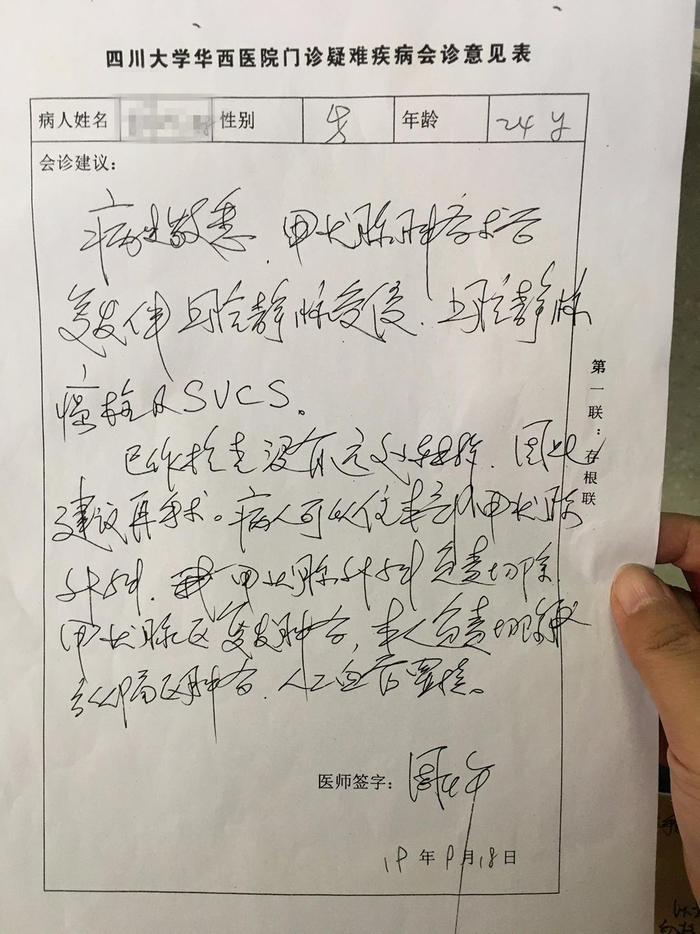 四川大学华西医院门诊疑难疾病会诊意见表
病人姓名 性别 男 年龄 24 y
会诊建议：
病史敬悉. 甲状腺肿瘤术后
复发伴上腔静脉受侵. 上腔静脉
癌栓及SVCS。
已作检查没有远处转移. 因此
建议再手术。病人可以住本院甲状腺
外科. 甲状腺外科负责切除
甲状腺区复发肿瘤, 本人负责切除
纵隔区肿瘤. 人工血管置换。
医师签字：
19 年 9 月 18 日
第一联：存根联